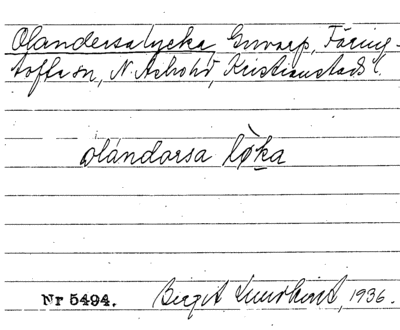 Olanderslycka, Gnvarp, Färing-
tofta sn, N. Åsbo hd, Kristianstads l.
olándorsa lø̀ka
Nr 5494. Birgit Lundkvist, 1936.